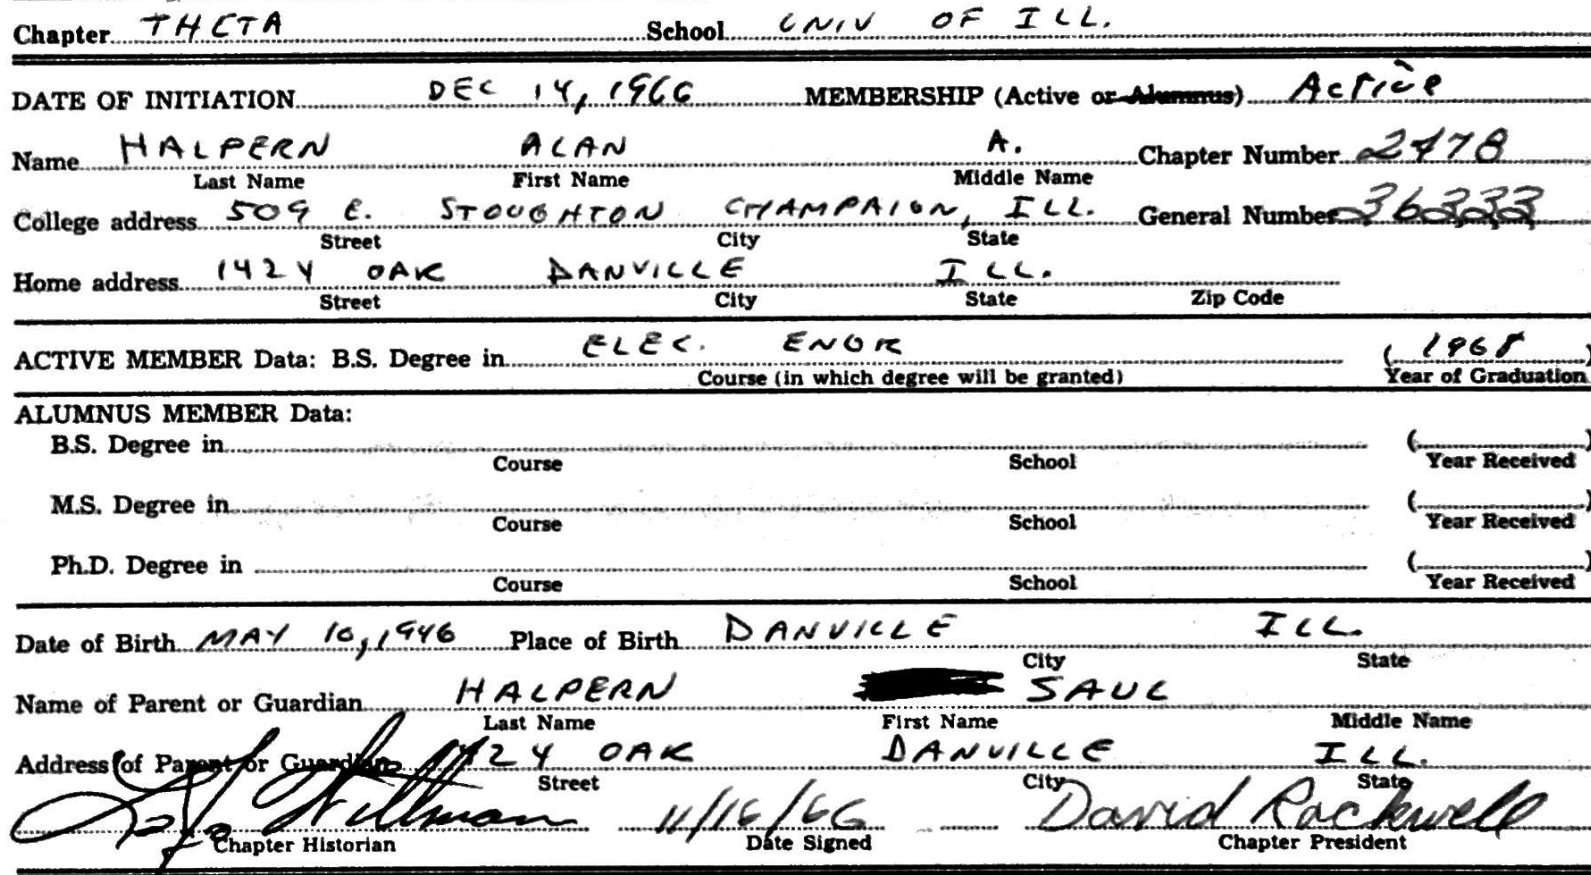 Chapter THETA School UNIV OF ILL.
DATE OF INITIATION DEC 14, 1966 MEMBERSHIP (Active or Alumnus) Active
Name HALPERN ALAN A. Chapter Number 2478
Last Name First Name Middle Name
College address 509 E. STOUGHTON CHAMPAIGN, ILL. General Number 36333
Street City State
Home address 1424 OAK DANVILLE ILL.
Street City State Zip Code
ACTIVE MEMBER Data: B.S. Degree in ELEC. ENGR (1968)
Course (in which degree will be granted) Year of Graduation
ALUMNUS MEMBER Data:
B.S. Degree in ( )
Course School Year Received
M.S. Degree in ( )
Course School Year Received
Ph.D. Degree in ( )
Course School Year Received
Date of Birth MAY 10, 1946 Place of Birth DANVILLE ILL.
City State
Name of Parent or Guardian HALPERN SAUL
Last Name First Name Middle Name
Address of Parent or Guardian 1424 OAK DANVILLE ILL.
Street City State
Hillman 11/16/66 David Rockwell
Chapter Historian Date Signed Chapter President